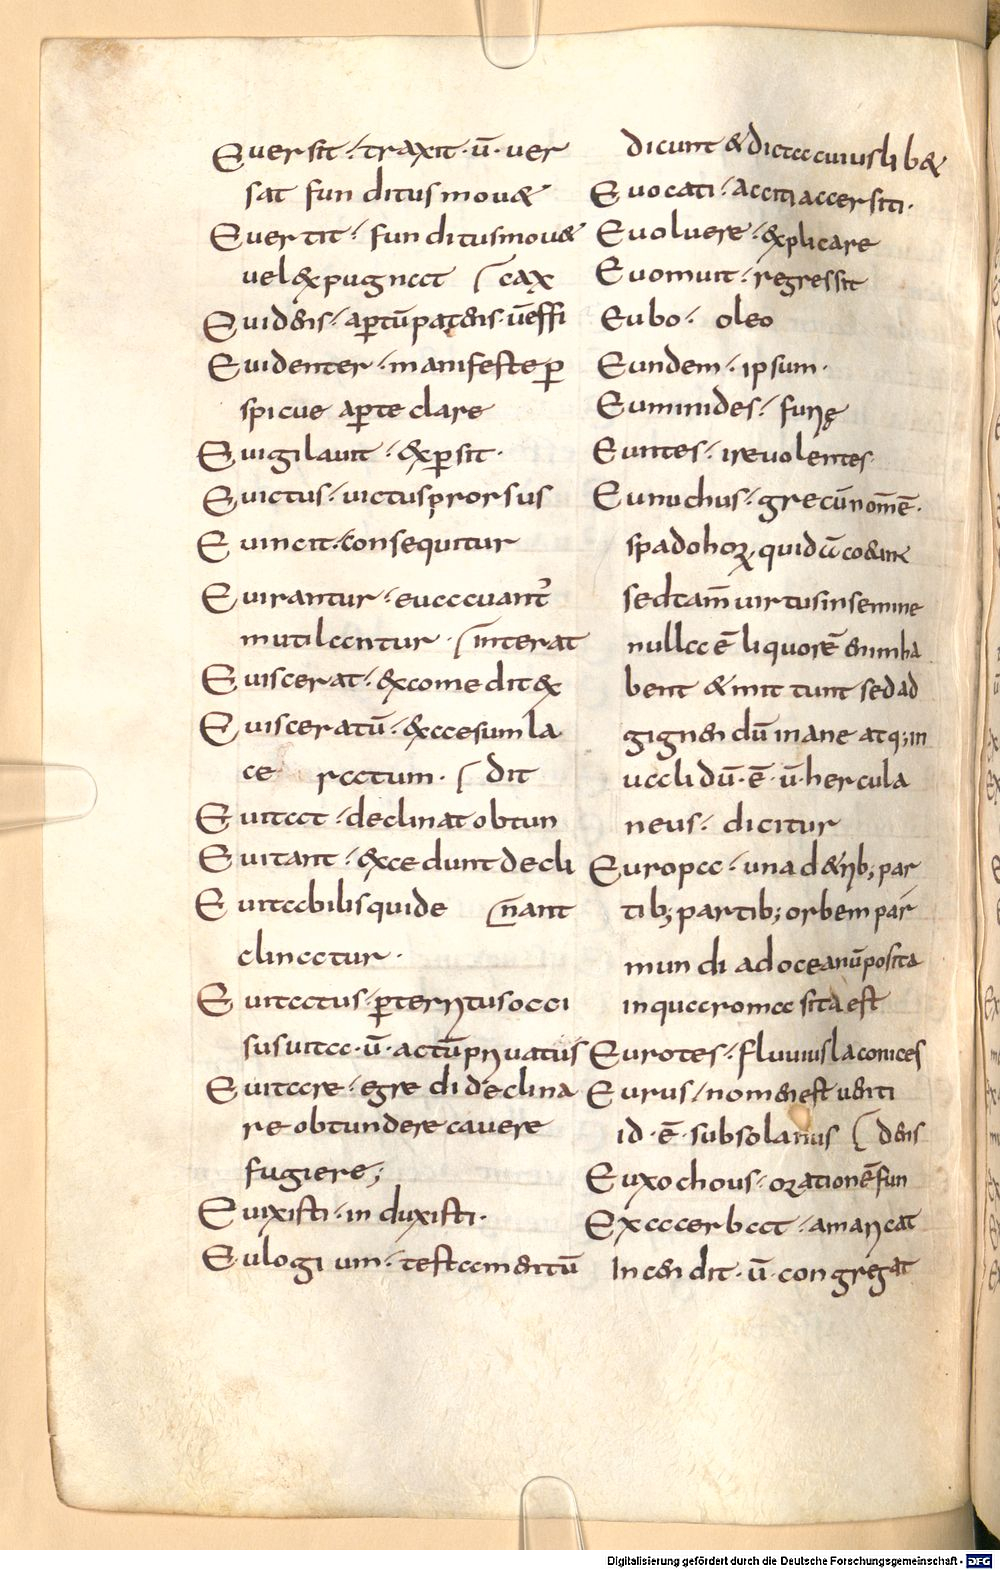 Euersit · traxit · ū · uer
sat funditus mou&
Euertit · funditus mou&
uel &xpugnat ⌠ cax
Euidens · aꝑtū patens · ū effi
Euidenter · manifeste ꝑ
spicue aꝑte clare
Euigilauit · &xꝑsit ·
Euictus · uictus prorsus
Euincit · consequitur
Euirantur · euacuant᷑
mutilantur · ⌠ interat
Euiscerat · &xcomedit &x
Euisceratū · &xaesum la
ce ratum · ⌠ dit
Euitat · declinat obtun
Euitant · &xcedunt decli
Euitabilis qui de ⌠ nant
clinatur ·
Euitatus · ꝑterritus occi
sus uita · ū · actū priuatus
Euitare · egredi declina
re obtundere cauere
fugiere;
Euixisti · in duxisti ·
Eulogium · testamentū
dicunt & dicta cuius lib&
Euocati · acciti accersiti ·
Euoluere · &xplicare
Euomuit · regressit
Eubo · oleo
Eundem · ipsum ·
Euminides · furię
Euntes · ire uolentes
Eunuchus · grecū nom̄ ē ·
spadohoꝝ quidā coeunt
sed tam̄ uirtus in semine
nulla ē liquorē enim ha
bent & mittunt sed ad
gignendū inane atq; in
ualidū · ē · ū · hercula
neus · dicitur
Europa · una de trib; par
tib; partib; orbem par
mundi ad oceanū posita
in qua roma sita est
Eurotes · fluuius laconices
Eurus · nomen est uenti
id · ē · subsolanus ⌠ dens
Euxochous · orationē fun
Exacerbat · amaricat
Incendit · ū · congregat
Digitalisierung gefördert durch die Deutsche Forschungsgemeinschaft - DFG